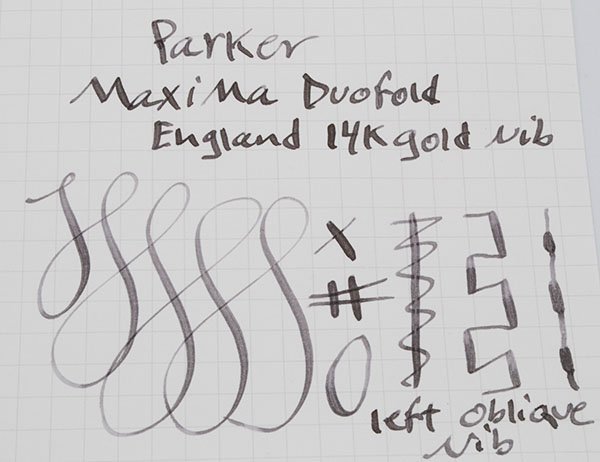 Parker
Maxima Duofold
England 14K gold nib
left oblique
nib